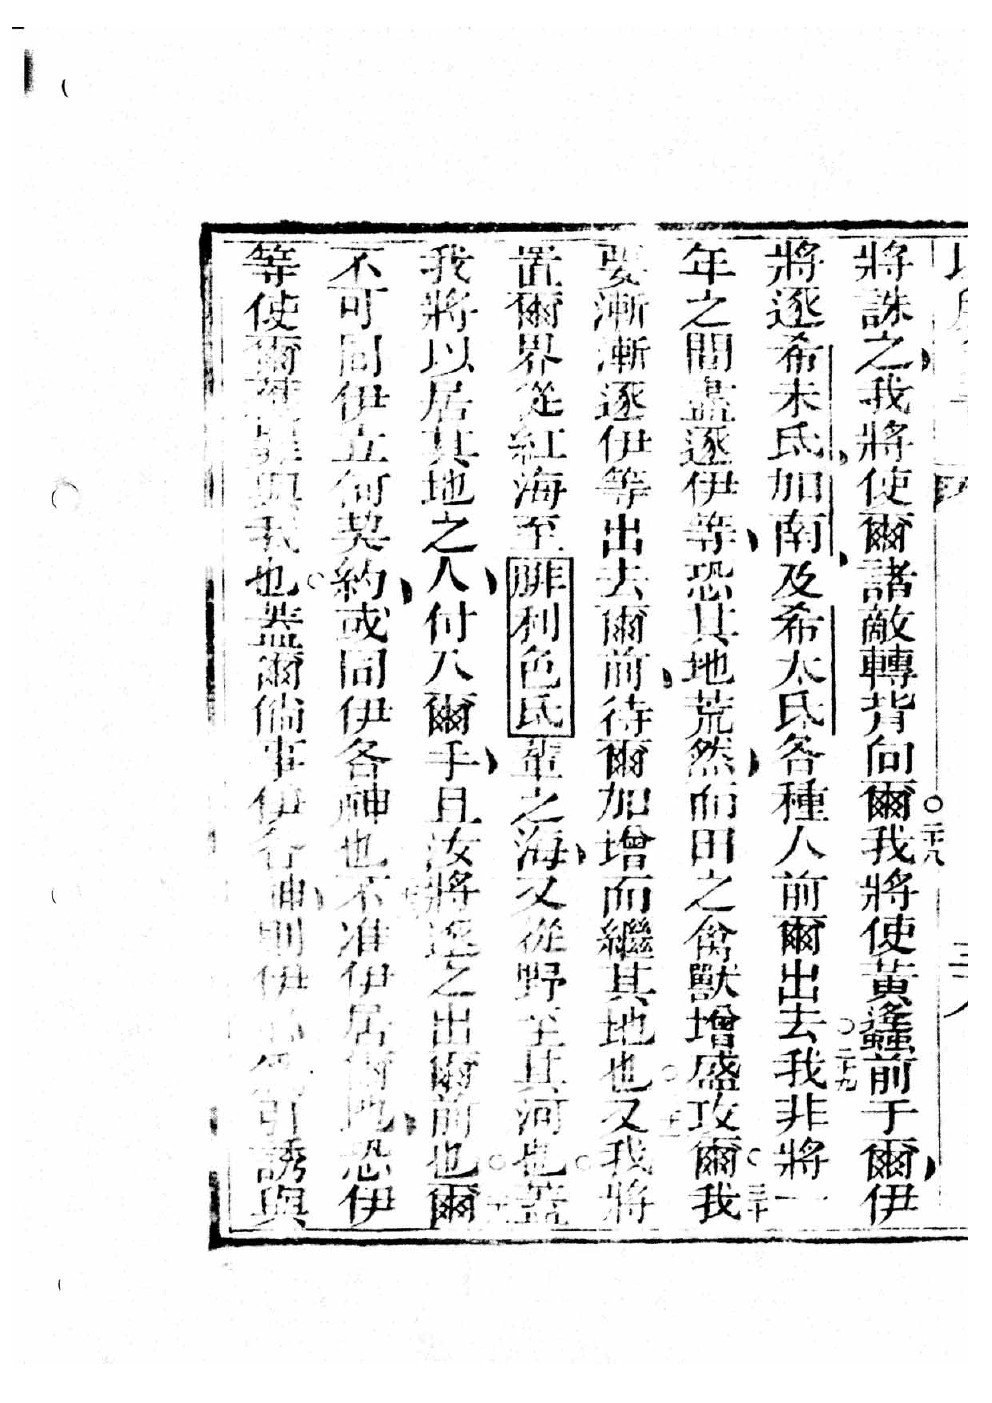 將誅之我將使爾諸敵轉背向爾○二十八我將使黃蠭前于爾伊
將逐希未氏加南及希太氏各種人前爾出去○二十九我非將一
年之間盡逐伊等恐其地荒然而田之禽獸增盛攻爾○三十我
要漸漸逐伊等出去爾前待爾加增而繼其地也○又我將
置爾界從紅海至腓利色氏輩之海又從野至其河也○蓋
我將以居其地之人付入爾手且汝將逐之出爾前也○爾
不可同伊立何契約或同伊各神也不准伊居爾地恐伊
等使爾罪與我也○蓋爾倘事伊各神則伊引誘與